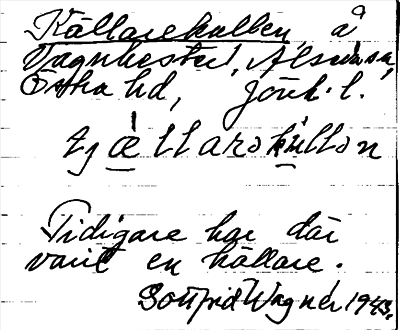 Källarekullen, å
Vagnhester, Almesåsa,
Östra hd, Jönk. l.
tjællarəkullən
Tidigare har där
varit en källare.
Gottfrid Wagnér 1943.